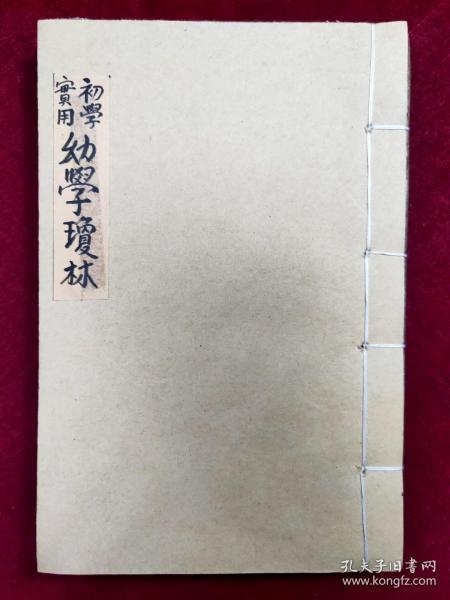 初學
實用
幼學瓊林
孔夫子旧书网
www.kongfz.com